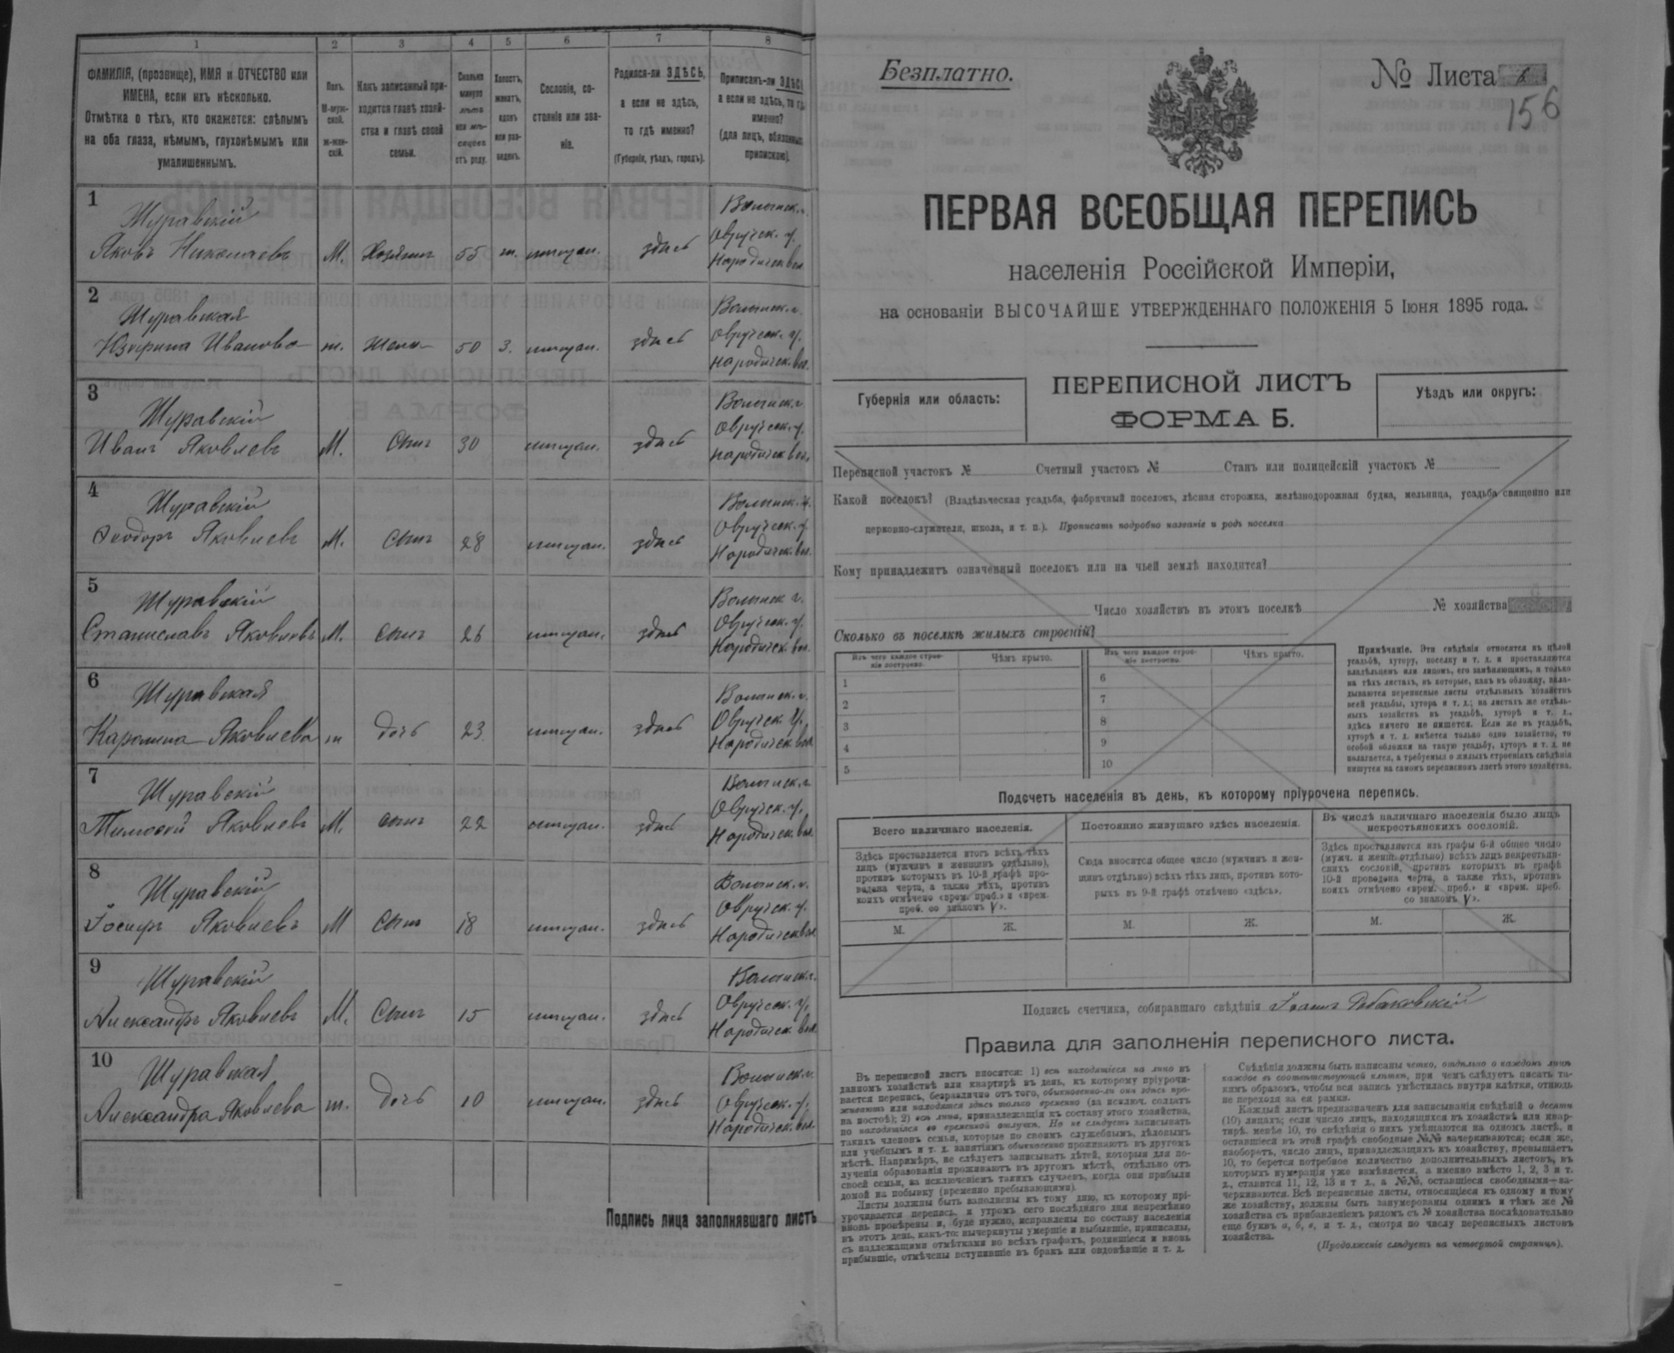 1 2 3 4 5 6 7 8
ФАМИЛІЯ, (прозвище), ИМЯ и ОТЧЕСТВО или
ИМЕНА, если ихъ нѣсколько.
Отмѣтка о тѣхъ, кто окажется: слѣпымъ
на оба глаза, нѣмымъ, глухонѣмымъ или
умалишеннымъ.
Полъ.
М-муж-
ской.
Ж-жен-
скій.
Какъ записанный при-
ходится главѣ хозяй-
ства и главѣ своей
семьи.
Сколько
минуло
лѣтъ
или мѣ-
сяцевъ
отъ роду.
Холостъ,
женатъ,
вдовъ
или раз-
веденъ.
Сословіе, со-
стояніе или зва-
ніе.
Родился-ли ЗДѢСЬ,
а если не здѣсь,
то гдѣ именно?
(Губернія, уѣздъ, городъ).
Приписанъ-ли ЗДѢСЬ,
а если не здѣсь, то гдѣ
именно?
(для лицъ, обязанныхъ
припискою).
1
Журавскій
Яковъ Николаевъ М. Хозяинъ 55 ж. мѣщан. здѣсь
Волынск. г.
Овручск. у.
Народичск. вол.
2
Журавская
Юзефина Иванова ж. Жена 50 З. мѣщан. здѣсь
Волынск. г.
Овручск. у.
Народичск. вол.
3
Журавскій
Иванъ Яковлевъ М. Сынъ 30 мѣщан. здѣсь
Волынск. г.
Овручск. у.
Народичск. вол.
4
Журавскій
Ѳеодоръ Яковлевъ М. Сынъ 28 мѣщан. здѣсь
Волынск. г.
Овручск. у.
Народичск. вол.
5
Журавскій
Станиславъ Яковлевъ М. Сынъ 26 мѣщан. здѣсь
Волынск г.
Овручск. у.
Народичск. вол.
6
Журавская
Каролина Яковлева ж дочь 23 мѣщан. здѣсь
Волынск. г.
Овручск. у.
Народичск вол.
7
Журавскій
Тимофей Яковлевъ М. сынъ 22 мѣщан. здѣсь
Волынск. г.
Овручск. у.
Народичск. вол.
8
Журавскій
Іосифъ Яковлевъ М Сынъ 18 мѣщан. здѣсь
Волынск. г.
Овручск. у.
Народичск вол.
9
Журавскій
Александръ Яковлевъ М. Сынъ 15 мѣщан. здѣсь
Волынск. г.
Овручск. у.
Народичск. вол.
10
Журавская
Александра Яковлева ж. дочь 10 мѣщан. здѣсь
Волынск. г.
Овручск. у.
Народичск. вол.
Подпись лица заполнявшаго листъ
Безплатно.
№ Листа
156
ПЕРВАЯ ВСЕОБЩАЯ ПЕРЕПИСЬ
населенія Россійской Имперіи,
на основаніи ВЫСОЧАЙШЕ УТВЕРЖДЕННАГО ПОЛОЖЕНІЯ 5 Іюня 1895 года.
Губернія или область:
ПЕРЕПИСНОЙ ЛИСТЪ
ФОРМА Б.
Уѣздъ или округъ:
Переписной участокъ № Счетный участокъ № Станъ или полицейскій участокъ №
Какой поселокъ? (Владѣльческая усадьба, фабричный поселокъ, лѣсная сторожка, желѣзнодорожная будка, мельница, усадьба священно или
церковно-служителя, школа, и т. п.). Прописать подробно названіе и родъ поселка
Кому принадлежитъ означенный поселокъ или на чьей землѣ находится?
Число хозяйствъ въ этомъ поселкѣ № хозяйства
Сколько въ поселкѣ жилыхъ строеній?
Изъ чего каждое строе-
ніе построено.
Чѣмъ крыто.
Изъ чего каждое строе-
ніе построено.
Чѣмъ крыто.
1 6
2 7
3 8
4 9
5 10
Примѣчаніе. Эти свѣдѣнія относятся къ цѣлой
усадьбѣ, хутору, поселку и т. д. и проставляются
владѣльцемъ или лицомъ, его замѣняющимъ, и только
на тѣхъ листахъ, въ которые, какъ въ обложку, вкла-
дываются переписные листы отдѣльныхъ хозяйствъ
всей усадьбы, хутора и т. д.; на листахъ же отдѣль-
ныхъ хозяйствъ въ усадьбѣ, хуторѣ и т. д.,
здѣсь ничего не пишется. Если же въ усадьбѣ,
хуторѣ и т. д. имѣется только одно хозяйство, то
особой обложки на такую усадьбу, хуторъ и т. д. не
полагается, а требуемыя о жилыхъ строеніяхъ свѣдѣнія
пишутся на самомъ переписномъ листѣ этого хозяйства.
Подсчетъ населенія въ день, къ которому пріурочена перепись.
Всего наличнаго населенія.
Постоянно живущаго здѣсь населенія.
Въ числѣ наличнаго населенія было лицъ
некрестьянскихъ сословій.
Здѣсь проставляется итогъ всѣхъ тѣхъ
лицъ (мужчинъ и женщинъ отдѣльно),
противъ которыхъ въ 10-й графѣ про-
ведена черта, а также тѣхъ, противъ
коихъ отмѣчено «врем. преб.» и «врем.
преб. со знакомъ V».
Сюда вносится общее число (мужчинъ и жен-
щинъ отдѣльно) всѣхъ тѣхъ лицъ, противъ кото-
рыхъ въ 9-й графѣ отмѣчено «здѣсь».
Здѣсь проставляется изъ графы 6-й общее число
(мужч. и женщ. отдѣльно) всѣхъ лицъ некрестьян-
скихъ сословій, противъ которыхъ въ графѣ
10-й проведена черта, а также тѣхъ, противъ
коихъ отмѣчено «врем. преб.» и «врем. преб.
со знакомъ V».
М. Ж. М. Ж. М. Ж.
Подпись счетчика, собиравшаго свѣдѣнія Іванъ
Правила для заполненія переписного листа.
Въ переписной листъ вносятся: 1) всѣ находящіеся на лицо въ
данномъ хозяйствѣ или квартирѣ въ день, къ которому пріурочи-
вается перепись, безразлично отъ того, обыкновенно-ли они здѣсь про-
живаютъ или находятся здѣсь только временно (за исключ. солдатъ
на постоѣ); 2) всѣ лица, принадлежащія къ составу этого хозяйства,
но находящіяся во временной отлучкѣ. Но не слѣдуетъ записывать
такихъ членовъ семьи, которые по своимъ служебнымъ, дѣловымъ
или учебнымъ и т. д. занятіямъ обыкновенно проживаютъ въ другомъ
мѣстѣ. Напримѣръ, не слѣдуетъ записывать дѣтей, которыя для по-
лученія образованія проживаютъ въ другомъ мѣстѣ, отдѣльно отъ
своей семьи, за исключеніемъ такихъ случаевъ, когда они прибыли
домой на побывку (временно пребывающими).
Листы должны быть заполнены къ тому дню, къ которому прі-
урочивается перепись, и утромъ сего послѣдняго дня непремѣнно
вновь провѣрены и, буде нужно, исправлены по составу населенія
въ этотъ день, какъ-то: вычеркнуты умершіе и выбывшіе, приписаны,
съ надлежащими отмѣтками во всѣхъ графахъ, родившіеся и вновь
прибывшіе, отмѣчены вступившіе въ бракъ или овдовѣвшіе и т. д.
Свѣдѣнія должны быть написаны четко, отдѣльно о каждомъ лицѣ
каждое въ соотвѣтствующей клѣткѣ, при чемъ слѣдуетъ писать та-
кимъ образомъ, чтобы вся запись умѣстилась внутри клѣтки, отнюдь
не переходя за ея рамки.
Каждый листъ предназначенъ для записыванія свѣдѣній о десяти
(10) лицахъ; если число лицъ, находящихся въ хозяйствѣ или квар-
тирѣ, менѣе 10, то свѣдѣнія о нихъ умѣщаются на одномъ листѣ, и
оставшіеся въ этой графѣ свободные №№ зачеркиваются; если же,
наоборотъ, число лицъ, принадлежащихъ къ хозяйству, превышаетъ
10, то берется потребное количество дополнительныхъ листовъ, въ
которыхъ нумерація уже измѣняется, а именно вмѣсто 1, 2, 3 и т.
д., ставится 11, 12, 13 и т. д., а №№, оставшіеся свободными—за-
черкиваются. Всѣ переписные листы, относящіеся къ одному и тому
же хозяйству, должны быть занумерованы однимъ и тѣмъ же №
хозяйства съ прибавленіемъ рядомъ съ № хозяйства послѣдовательно
еще буквъ а, б, в, и т. д., смотря по числу переписныхъ листовъ
хозяйства.
(Продолженіе слѣдуетъ на четвертой страницѣ).